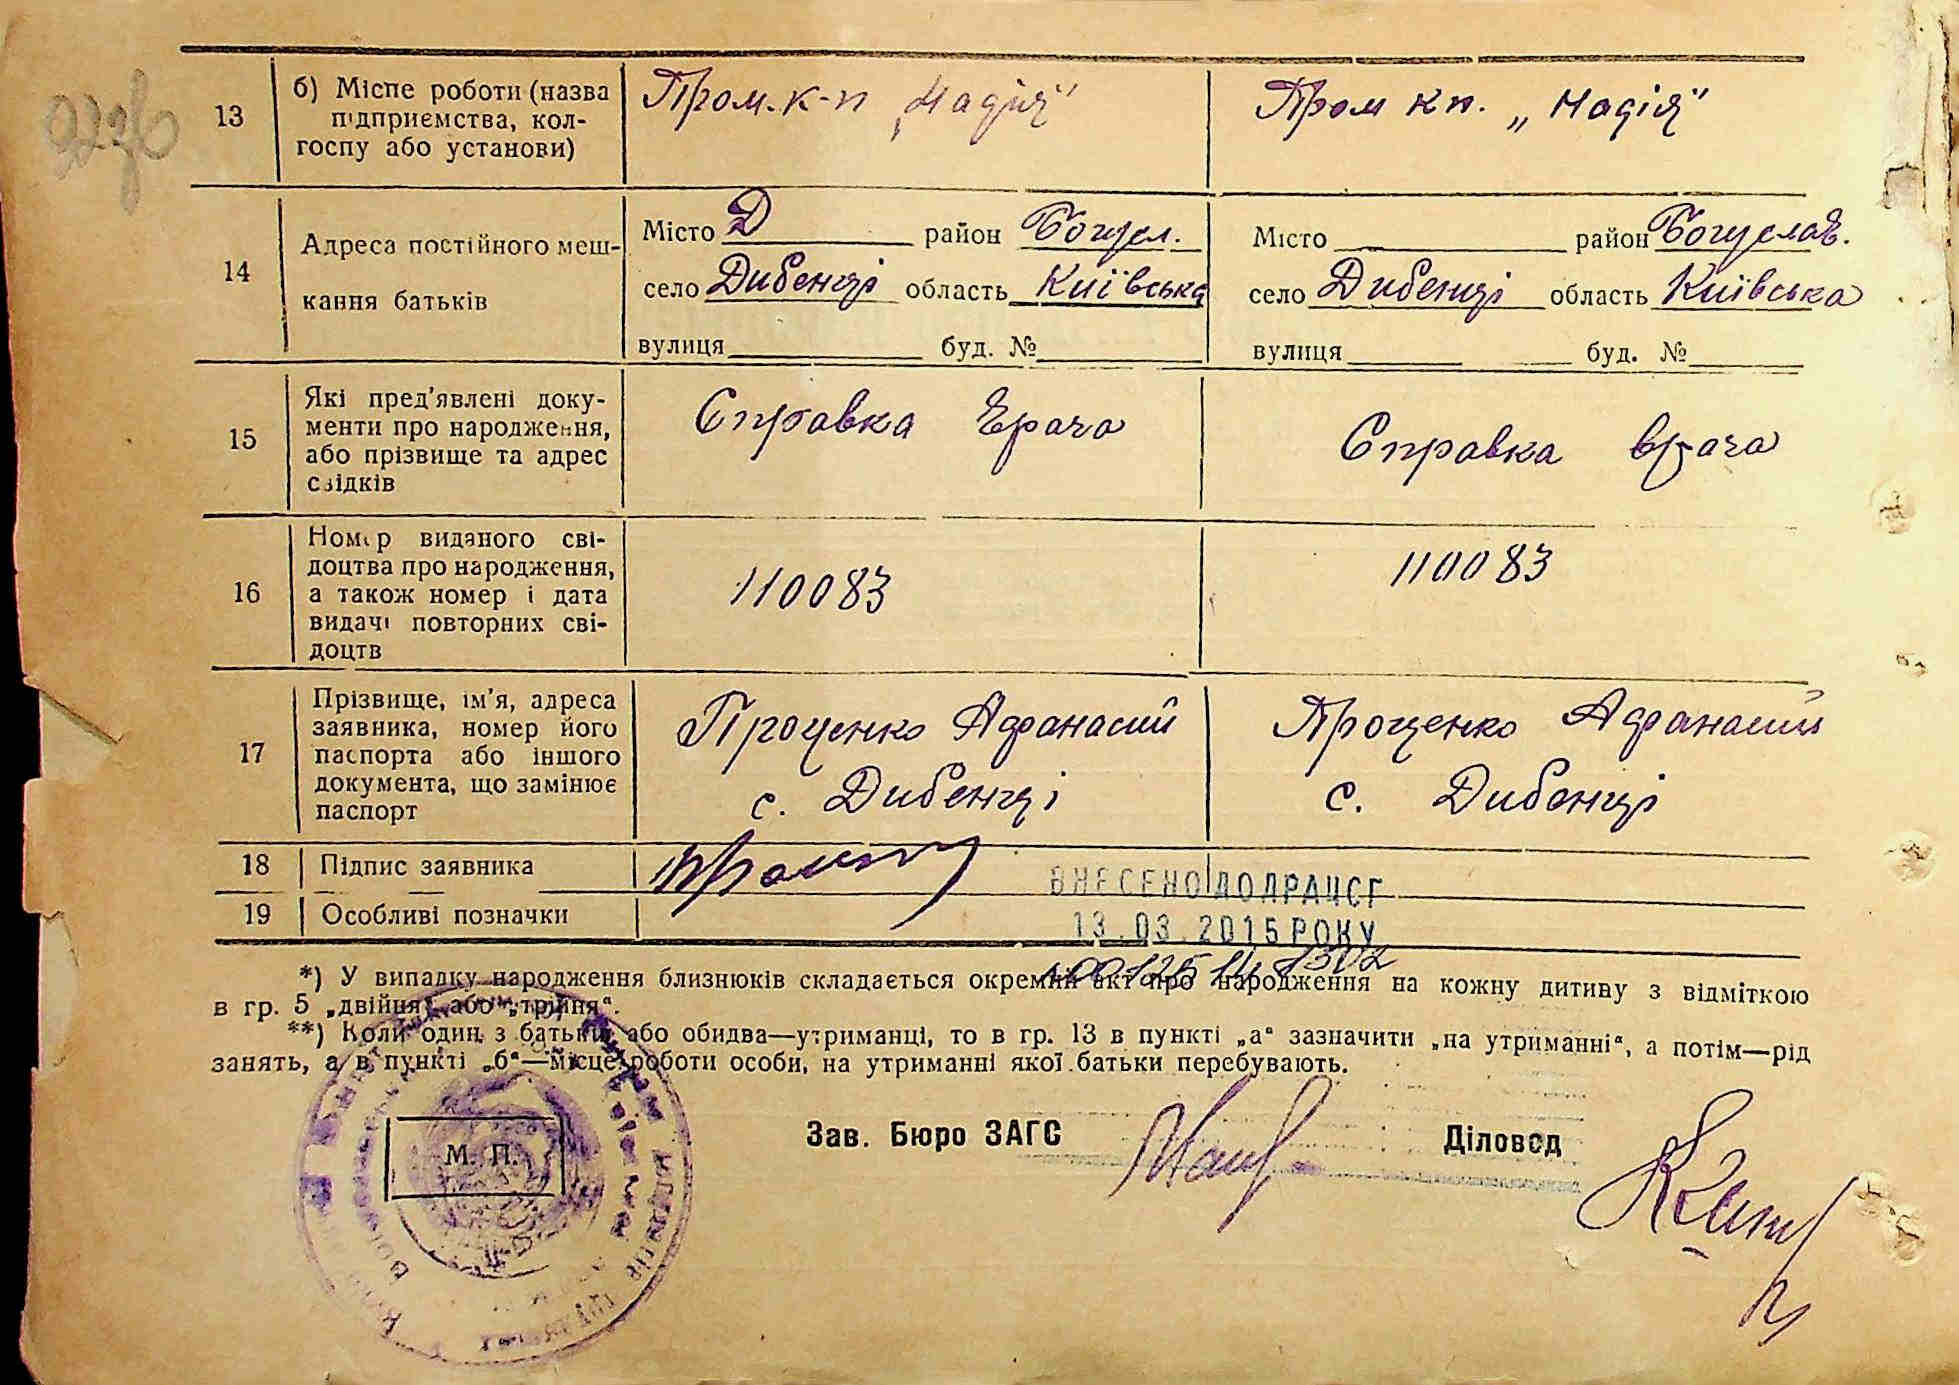 13
б) Місце роботи (назва
підприємства, кол-
госпу або установи)
Пром. к-п „Надія“
Пром кп. „Надія“
14
Адреса постійного меш-
кання батьків
Місто Д район Богусл.
село Дибенці область Київська
вулиця буд. №
Місто район Богуслав.
село Дибенці область Київська
вулиця буд. №
15
Які пред’явлені доку-
менти про народження,
або прізвище та адрес
свідків
Справка Врача
Справка врача
16
Номер виданого сві-
доцтва про народження,
а також номер і дата
видачі повторних сві-
доцтв
110083
110083
17
Прізвище, ім’я, адреса
заявника, номер його
паспорта або іншого
документа, що замінює
паспорт
Проценко Афанасий
с. Дибенці
Проценко Афанасий
с. Дибенці
18
Підпис заявника
19
Особливі позначки
ВНЕСЕНО ДО ДРАЦСГ
13.03.2015 РОКУ
*) У випадку народження близнюків складається окремий акт про народження на кожну дитину з відміткою
в гр. 5 „двійня“ або „трійня“.
**) Коли один з батьків або обидва—утриманці, то в гр. 13 в пункті „а“ зазначити „на утриманні“, а потім—рід
занять, а в пункті „б“—місце роботи особи, на утриманні якої батьки перебувають.
М. П.
Зав. Бюро ЗАГС
Діловод